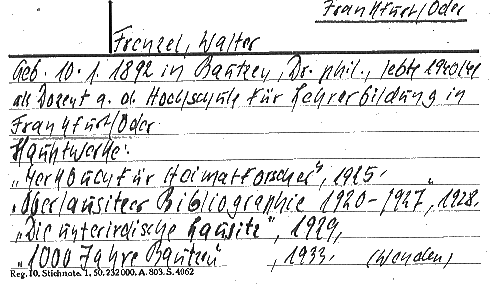 Frankfurt/Oder
Frenzel, Walter
Geb. 10. 1. 1892 in Bautzen, Dr. phil., lebte 1940/41
als Dozent a. d. Hochschule für Lehrerbildung in
Frankfurt/Oder.
Hauptwerke:
„Merkbuch für Heimatforscher", 1925.
„Oberlausitzer Bibliographie 1920-1927", 1928.
„Die unterirdische Lausitz", 1929,
„1000 Jahre Bautzen" , 1933. (Wenden)
Reg. 10. Stichnote. 1, 50. 232 000. A. 803. S. 4062